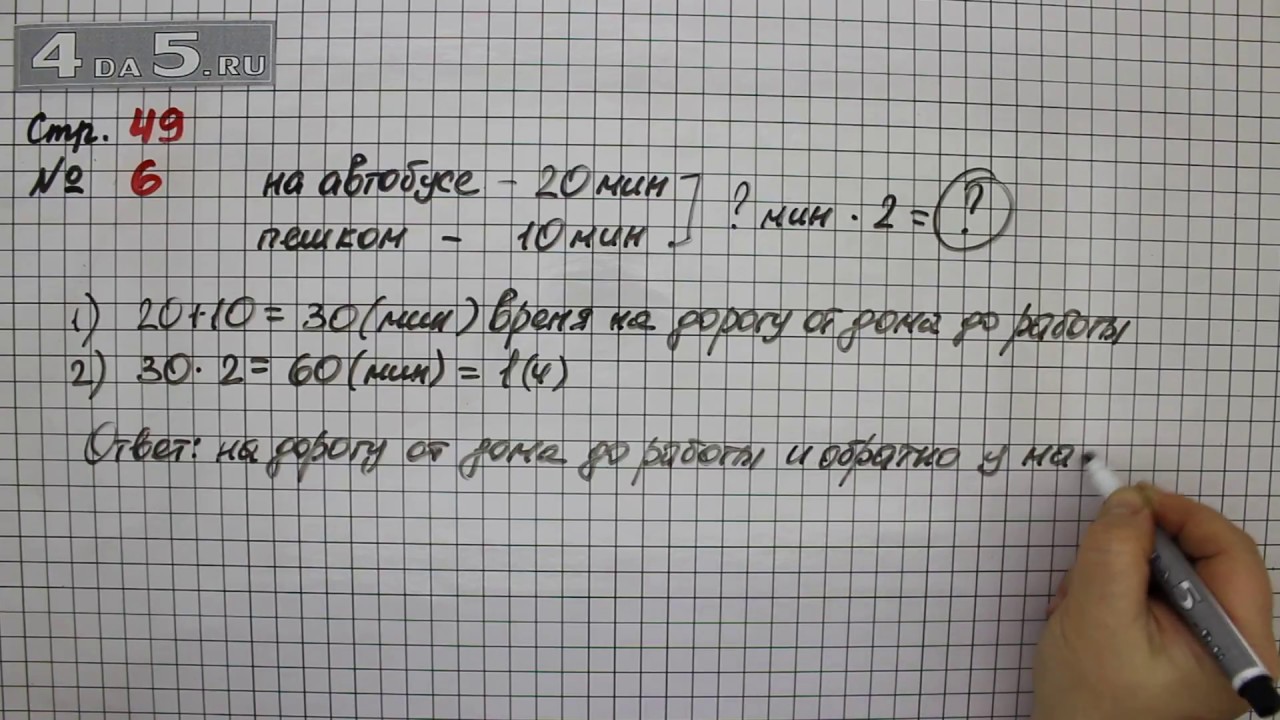 4DA5.RU
Стр. 49
№ 6
на автобусе - 20 мин
пешком - 10 мин
? мин · 2 = ?
1) 20+10 = 30 (мин) время на дорогу от дома до работы
2) 30 · 2 = 60 (мин) = 1 (ч)
Ответ: на дорогу от дома до работы и обратно у ма